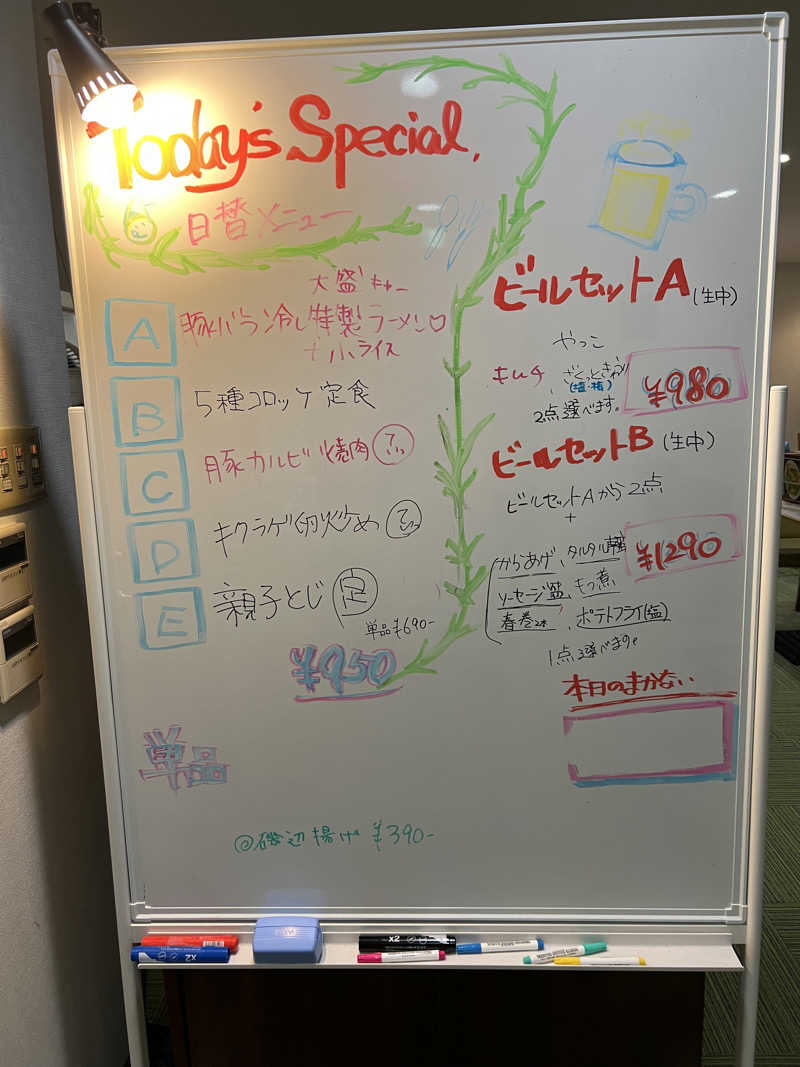 Today's Special.
日替メニュー
大盛
A 豚バラ冷し特製ラーメン♡
+小ライス
B 5種コロッケ定食
C 豚カルビ焼肉 定
D キクラゲ卵炒め 定
E 親子とじ 定
単品¥690-
¥950
単品
@磯辺揚げ ¥390-
ビールセットA(生中)
やっこ
キムチ、
2点選べます。
¥980
ビールセットB(生中)
ビールセットAから2点
+
からあげ、タルタル
ソーセージ盛、もつ煮
春巻2本、ポテトフライ(塩)
1点選べます。
¥1290
本日のまかない
X2
X2